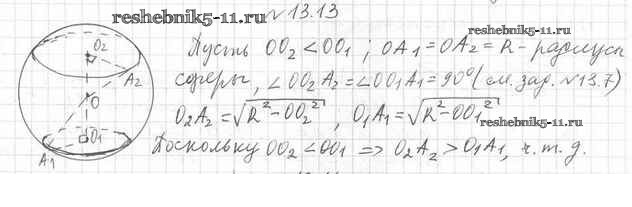 reshebnik5-11.ru
№13.13
reshebnik5-11.ru
Пусть OO₂ < OO₁ ; OA₁ = OA₂ = R - радиус
сферы, ∠OO₂A₂ = ∠OO₁A₁ = 90° (см. зад. №13.7)
O₂A₂ = √(R² - OO₂²) , O₁A₁ = √(R² - OO₁²)
reshebnik5-11.ru
Поскольку OO₂ < OO₁ => O₂A₂ > O₁A₁, ч. т. д.
O₂
A₂
O
O₁
A₁